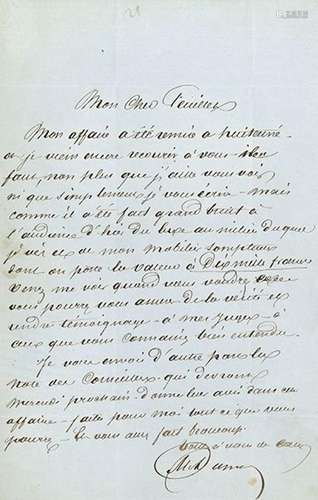 21
Mon Cher Feuillet
Mon affaire a été remise à huitaine
je viens encore recourir à vous
faut, non plus que j'aille vous voir
ni que simplement je vous écrive - mais
comme il a été fait grand bruit à
l'audience d'hier du luxe au milieu duquel
je vis et de mon mobilier somptueux
dont on porte la valeur à Dix mille francs
Venez me voir quand vous voudrez
vous pourrez vous assurer de la vérité et
rendre témoignage - à mes juges - à
ceux que vous connaissez bien entendu
Je vous envoie d'autre part la
note des qui devront
mercredi prochain dans
affaire - faites pour moi tout ce que vous
pourrez - Et vous aurez fait beaucoup.
Tout à vous de cœur